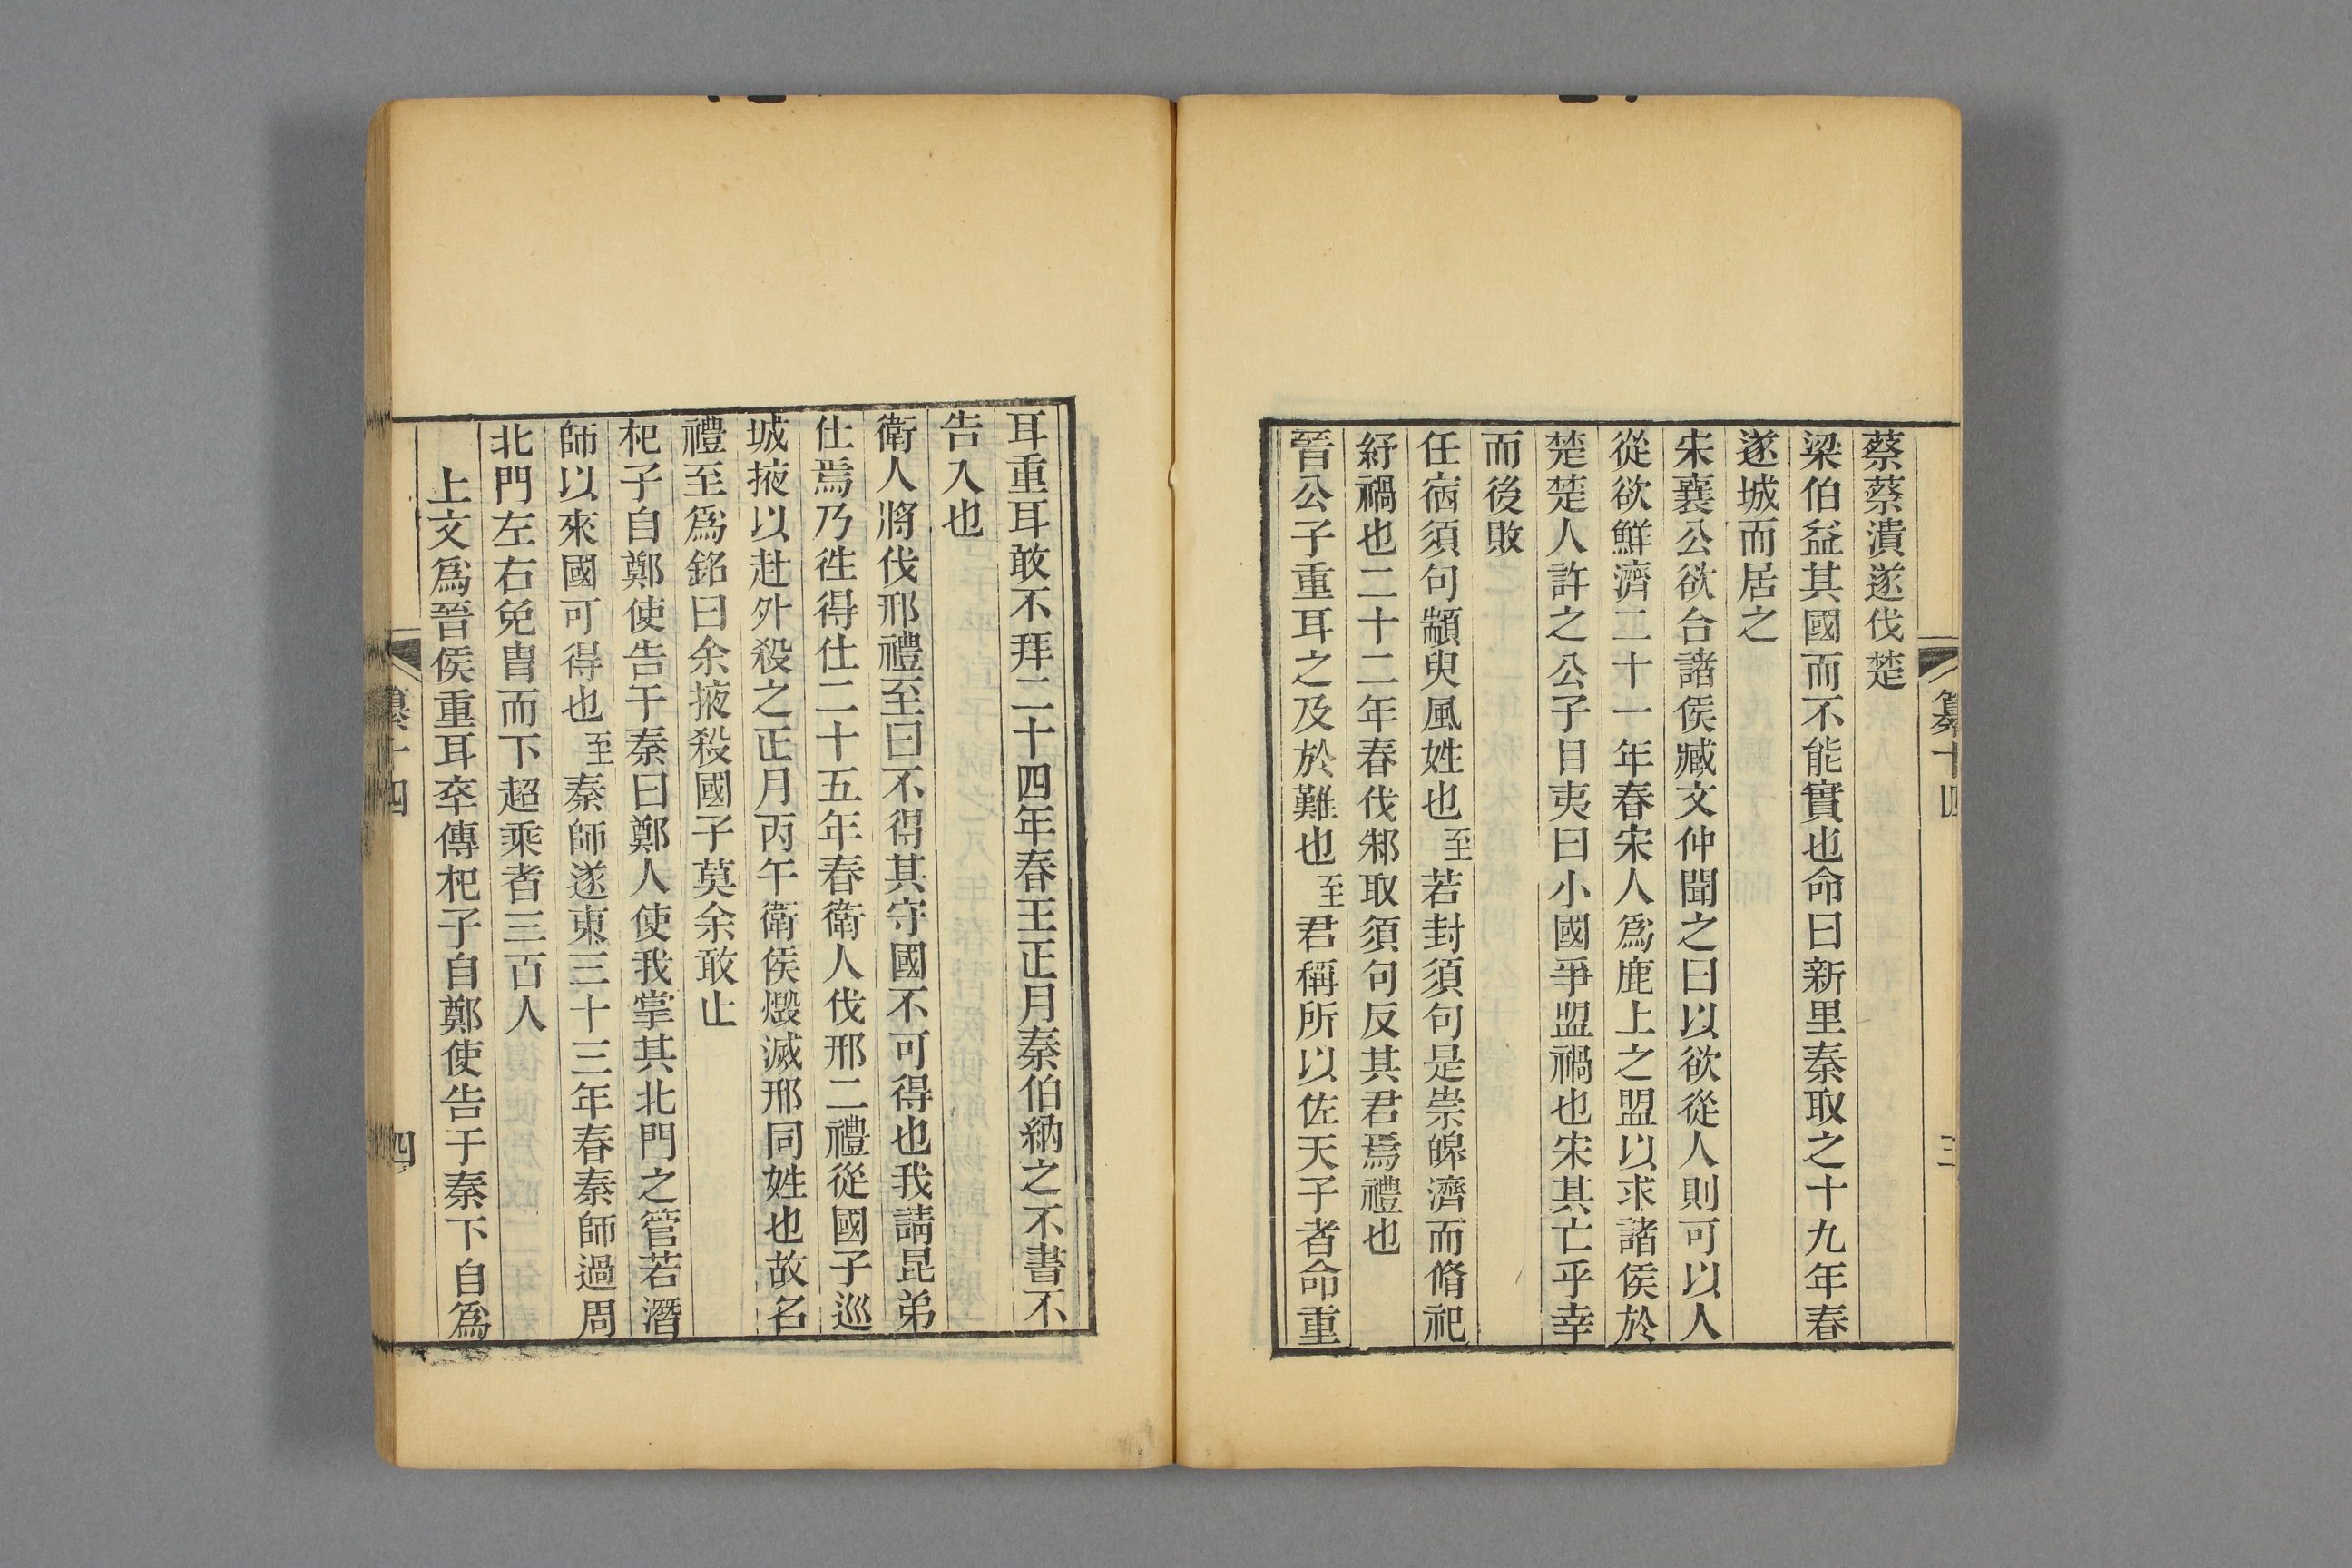 纂十四
三
蔡蔡潰遂伐楚
梁伯益其國而不能實也命曰新里秦取之十九年春
遂城而居之
宋襄公欲合諸侯臧文仲聞之曰以欲從人則可以人
從欲鮮濟二十一年春宋人爲鹿上之盟以求諸侯於
楚楚人許之公子目夷曰小國爭盟禍也宋其亡乎幸
而後敗
任宿須句顓臾風姓也至若封須句是崇皞濟而脩祀
紓禍也二十二年春伐邾取須句反其君焉禮也
晉公子重耳之及於難也至君稱所以佐天子者命重
耳重耳敢不拜二十四年春王正月秦伯納之不書不
告入也
衛人將伐邢禮至曰不得其守國不可得也我請昆弟
仕焉乃往得仕二十五年春衛人伐邢二禮從國子巡
城掖以赴外殺之正月丙午衛侯燬滅邢同姓也故名
禮至爲銘曰余掖殺國子莫余敢止
杞子自鄭使告于秦曰鄭人使我掌其北門之管若潛
師以來國可得也至秦師遂東三十三年春秦師過周
北門左右免胄而下超乘者三百人
上文爲晉侯重耳卒傳杞子自鄭使告于秦下自爲
纂十四
四